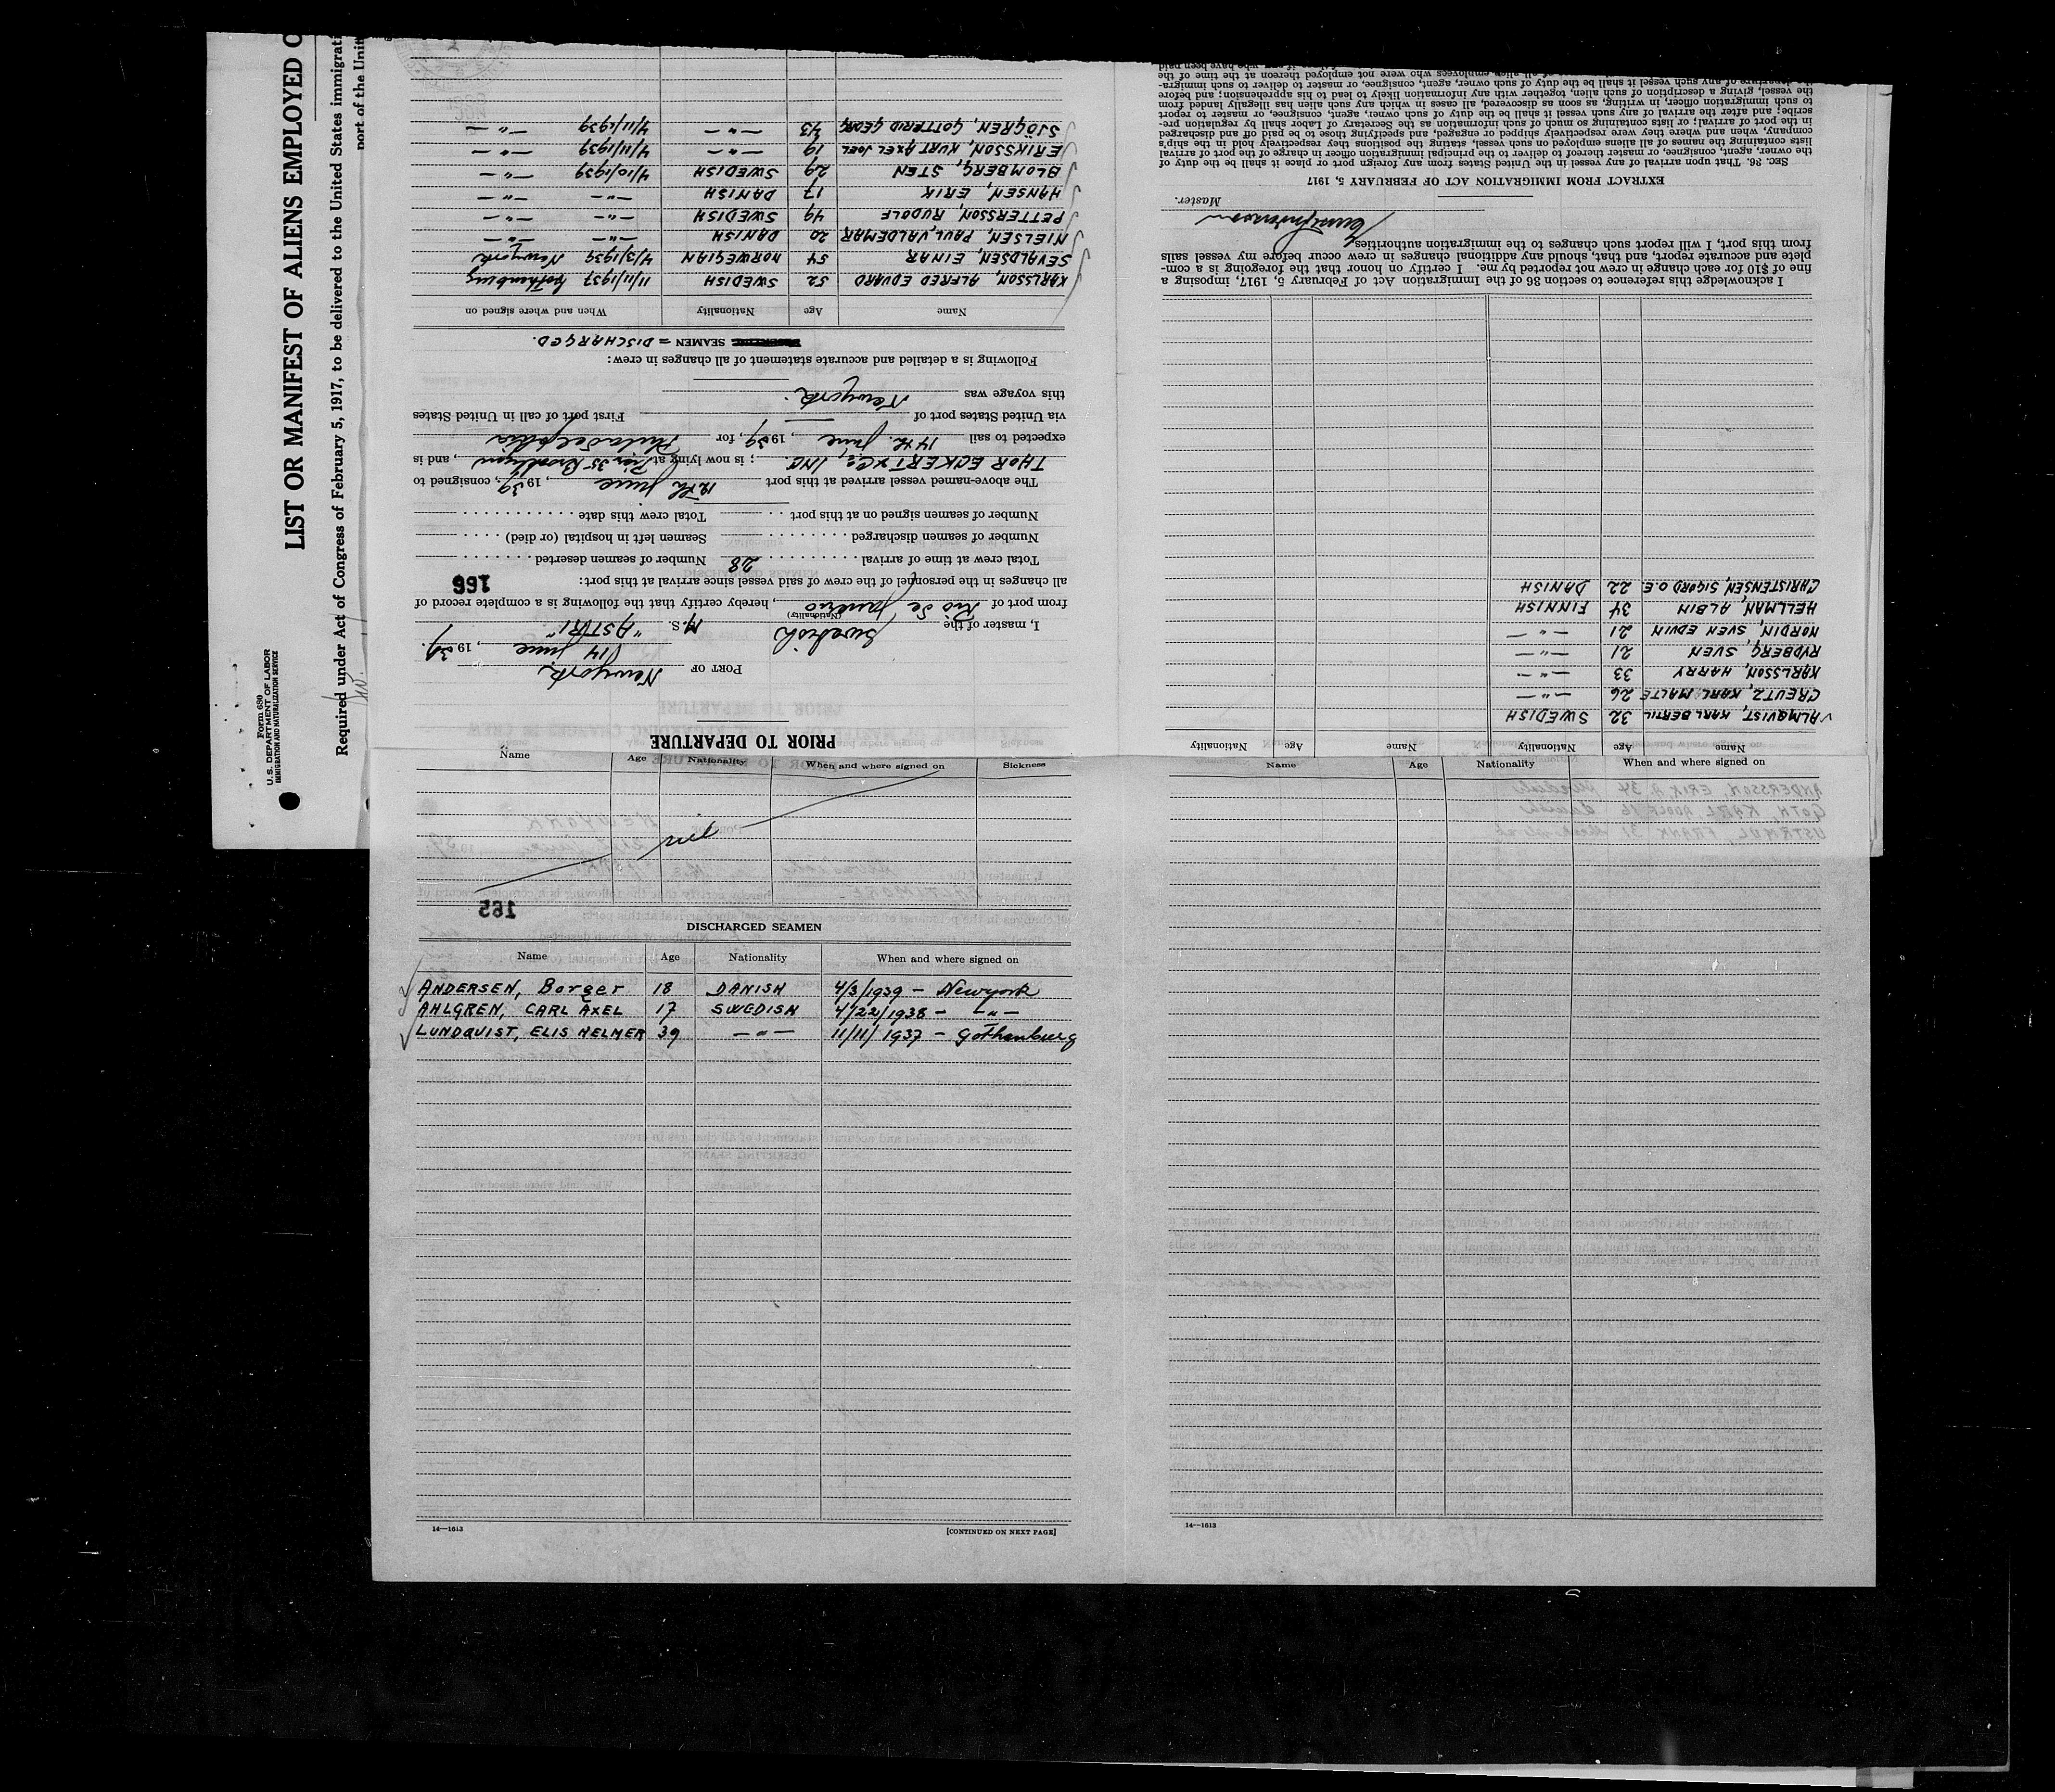 LIST OR MANIFEST OF ALIENS EMPLOYED O
Required under Act of Congress of February 5, 1917, to be delivered to the United States immigrati
port of the Unit
Form 680
U. S. DEPARTMENT OF LABOR
IMMIGRATION AND NATURALIZATION SERVICE
PRIOR TO DEPARTURE
PORT OF Newyork
14 June, 1939.
I, master of the Swedish M.S. "ASTRI"
(Nationality)
from port of Rio de Janeiro, hereby certify that the following is a complete record of
all changes in the personnel of the crew of said vessel since arrival at this port:
166
Total crew at time of arrival 28 Number of seamen deserted
Number of seamen discharged Seamen left in hospital (or died)
Number of seamen signed on at this port Total crew this date
The above-named vessel arrived at this port 12th June, 1939, consigned to
THOR ECKERT & Co, INC.; is now lying at Pier 35 Brooklyn, and is
expected to sail 14th June, 1939, for Philadelphia
via United States port of — First port of call in United States
this voyage was Newyork.
Following is a detailed and accurate statement of all changes in crew:
SEAMEN = DISCHARGED.
Name Age Nationality When and where signed on
KARLSSON, ALFRED EDVARD 52 SWEDISH 11/11/1937 Gothenburg
SEVALDSEN, EINAR 54 NORWEGIAN 4/3/1939 Newyork
NIELSEN, PAUL, VALDEMAR 20 DANISH —"— —"—
PETTERSSON, RUDOLF 49 SWEDISH —"— —"—
HANSEN, ERIK 17 DANISH —"— —"—
BLOMBERG, STEN 29 SWEDISH 4/10/1939 —"—
ERIKSSON, KURT AXEL JOEL 19 —"— 4/11/1939 —"—
SJÖGREN, GOTTFRID GEORG 43 —"— 4/11/1939 —"—
Name Age Nationality Name Age Nationality
ALMQVIST, KARL BERTIL 32 SWEDISH
CREUTZ, KARL MALTE 26 —"—
KARLSSON, HARRY 33 —"—
RYDBERG, SVEN 21 —"—
NORDIN, SVEN EDVIN 21 —"—
HELLMAN, ALBIN 34 FINNISH
CHRISTENSEN, SIGORD O.E. 22 DANISH
I acknowledge this reference to section 36 of the Immigration Act of February 5, 1917, imposing a
fine of $10 for each change in crew not reported by me. I certify on honor that the foregoing is a com-
plete and accurate report, and that, should any additional changes in crew occur before my vessel sails
from this port, I will report such changes to the immigration authorities.
Master.
EXTRACT FROM IMMIGRATION ACT OF FEBRUARY 5, 1917
SEC. 36. That upon arrival of any vessel in the United States from any foreign port or place it shall be the duty of
the owner, agent, consignee, or master thereof to deliver to the principal immigration officer in charge of the port of arrival
lists containing the names of all aliens employed on such vessel, stating the positions they respectively hold in the ship's
company, when and where they were respectively shipped or engaged, and specifying those to be paid off and discharged
in the port of arrival; or lists containing so much of such information as the Secretary of Labor shall by regulation pre-
scribe; and after the arrival of any such vessel it shall be the duty of such owner, agent, consignee, or master to report
to such immigration officer, in writing, as soon as discovered, all cases in which any such alien has illegally landed from
the vessel, giving a description of such alien, together with any information likely to lead to his apprehension; and before
the departure of any such vessel it shall be the duty of such owner, agent, consignee, or master to deliver to such immigra-
of all alien employees who were not employed thereon at the time of the
if any, who have been paid
Name Age Nationality When and where signed on Sickness
nil
165
DISCHARGED SEAMEN
Name Age Nationality When and where signed on
ANDERSEN, Borger 18 DANISH 4/3/1939 — Newyork
AHLGREN, CARL AXEL 17 SWEDISH 4/22/1938 — —"—
LUNDQUIST, ELIS HELMER 39 —"— 11/11/1937 — Gothenburg
14—1613 [CONTINUED ON NEXT PAGE]
Name Age Nationality When and where signed on
ANDERSSON, ERIK A. 34
GOTH, KARL ADOLF 16
USTRNUL, FRANK 31
14—1613